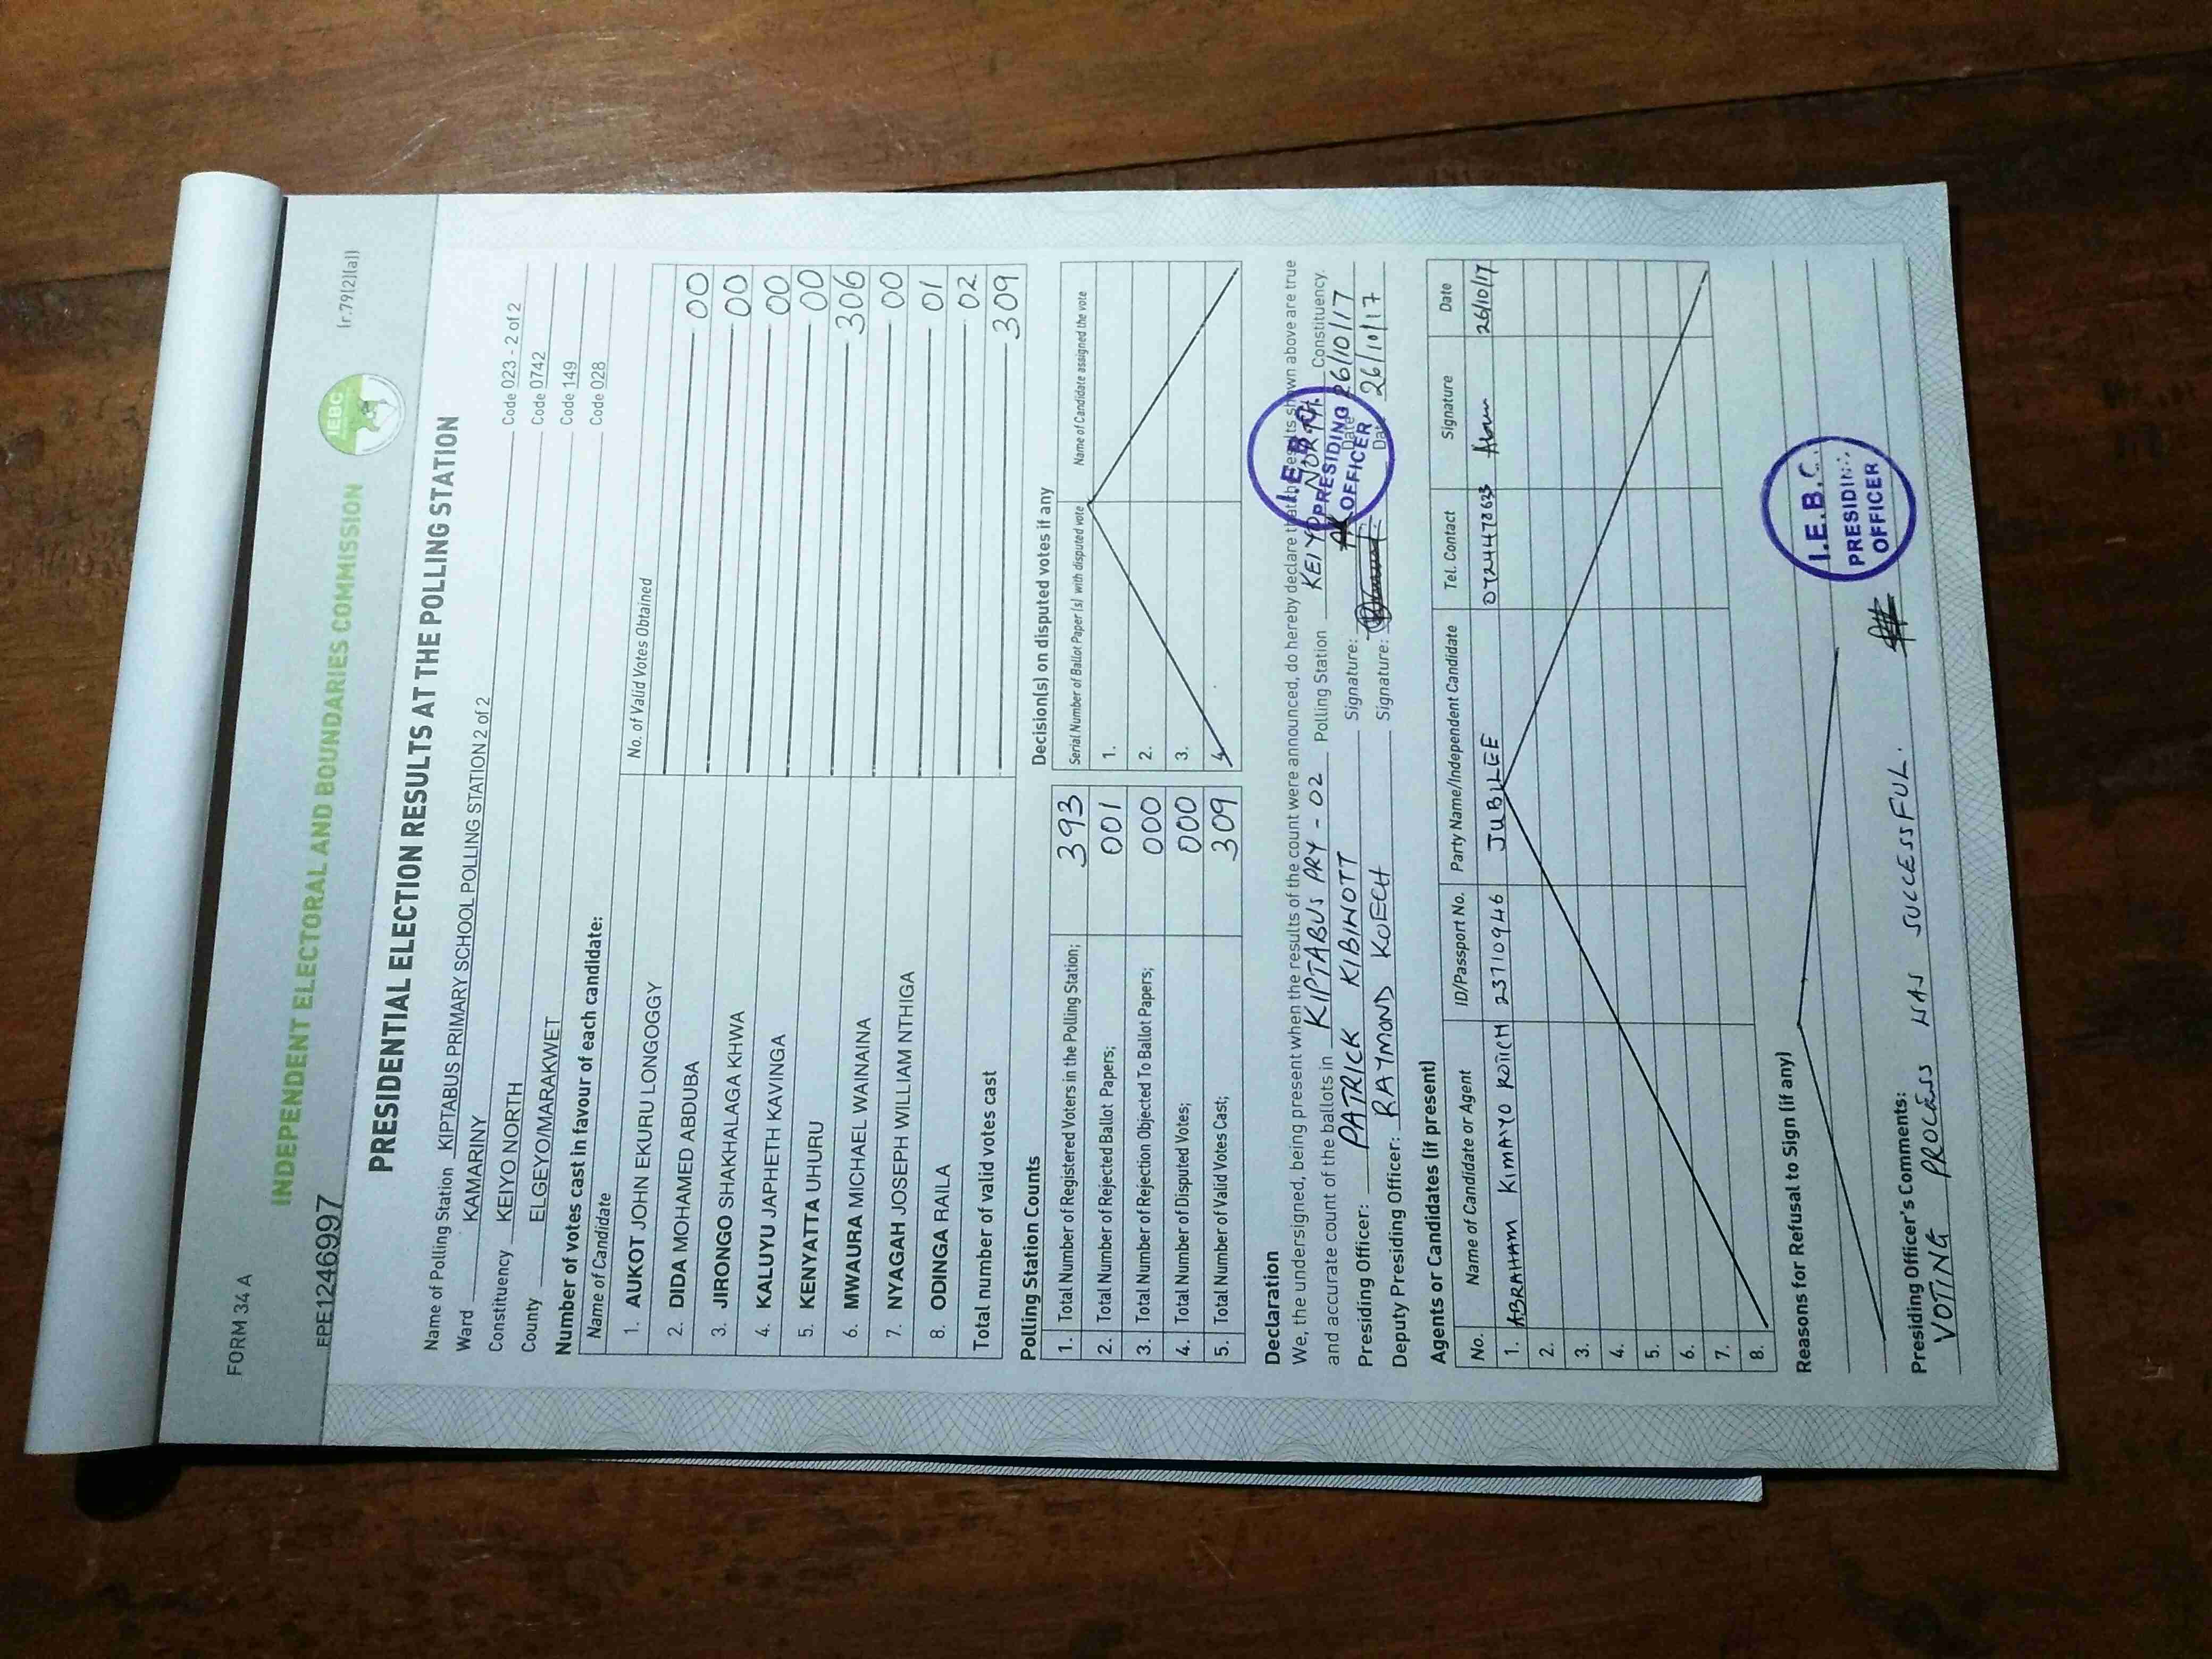 FORM 34 A
(r.79(2)(a))
INDEPENDENT ELECTORAL AND BOUNDARIES COMMISSION
IEBC
EPE1246997
PRESIDENTIAL ELECTION RESULTS AT THE POLLING STATION
Name of Polling Station KIPTABUS PRIMARY SCHOOL POLLING STATION 2 of 2 Code 023 - 2 of 2
Ward KAMARINY Code 0742
Constituency KEIYO NORTH Code 149
County ELGEYO/MARAKWET Code 028
Number of votes cast in favour of each candidate:
Name of Candidate No. of Valid Votes Obtained
1. AUKOT JOHN EKURU LONGOGGY 00
2. DIDA MOHAMED ABDUBA 00
3. JIRONGO SHAKHALAGA KHWA 00
4. KALUYU JAPHETH KAVINGA 00
5. KENYATTA UHURU 306
6. MWAURA MICHAEL WAINAINA 00
7. NYAGAH JOSEPH WILLIAM NTHIGA 01
8. ODINGA RAILA 02
Total number of valid votes cast 309
Polling Station Counts
1. Total Number of Registered Voters in the Polling Station; 393
2. Total Number of Rejected Ballot Papers; 001
3. Total Number of Rejection Objected To Ballot Papers; 000
4. Total Number of Disputed Votes; 000
5. Total Number of Valid Votes Cast; 309
Decision(s) on disputed votes if any
Serial Number of Ballot Paper (s) with disputed vote Name of Candidate assigned the vote
1.
2.
3.
4.
Declaration
We, the undersigned, being present when the results of the count were announced, do hereby declare that the results shown above are true
and accurate count of the ballots in KIPTABUS PRY - 02 Polling Station KEIYO NORTH Constituency.
Presiding Officer: PATRICK KIBIWOTT Signature: Date 26/10/17
Deputy Presiding Officer: RAYMOND KOECH Signature: Date 26/10/17
I.E.B.C.
PRESIDING
OFFICER
Agents or Candidates (if present)
No. Name of Candidate or Agent ID/Passport No. Party Name/Independent Candidate Tel. Contact Signature Date
1. ABRAHAM KIMAYO ROTICH 23710946 JUBLEE 0724478623 26/10/17
2.
3.
4.
5.
6.
7.
8.
Reasons for Refusal to Sign (if any)
Presiding Officer's Comments:
VOTING PROCESS WAS SUCCESSFUL.
I.E.B.C.
PRESIDING
OFFICER